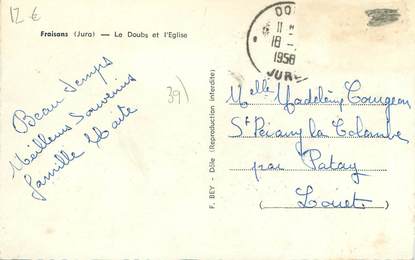 12 €
Fraisans (Jura) — Le Doubs et l'Eglise
DO
11
18 -
1958
JURA
39)
Beau temps
Meilleurs Souvenirs
famille
F. BEY - Dôle (Reproduction interdite)
Melle Madeleine Tourgeon
St Péravy la Colombe
par Patay
(Loiret)